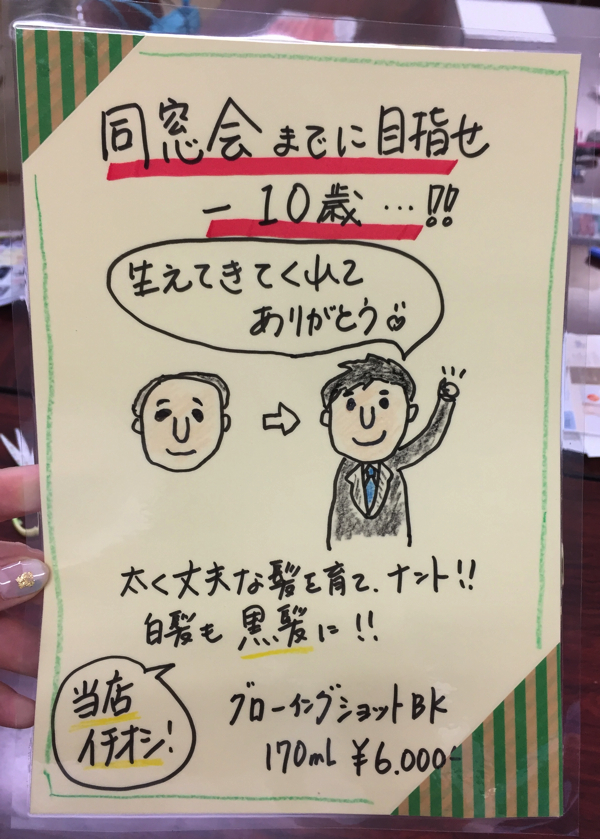 同窓会までに目指せ
－10歳…!!
生えてきてくれて
ありがとう
太く丈夫な髪を育て、ナント!!
白髪も黒髪に!!
当店
イチオシ!
グローイングショットBK
170ml ¥6.000-